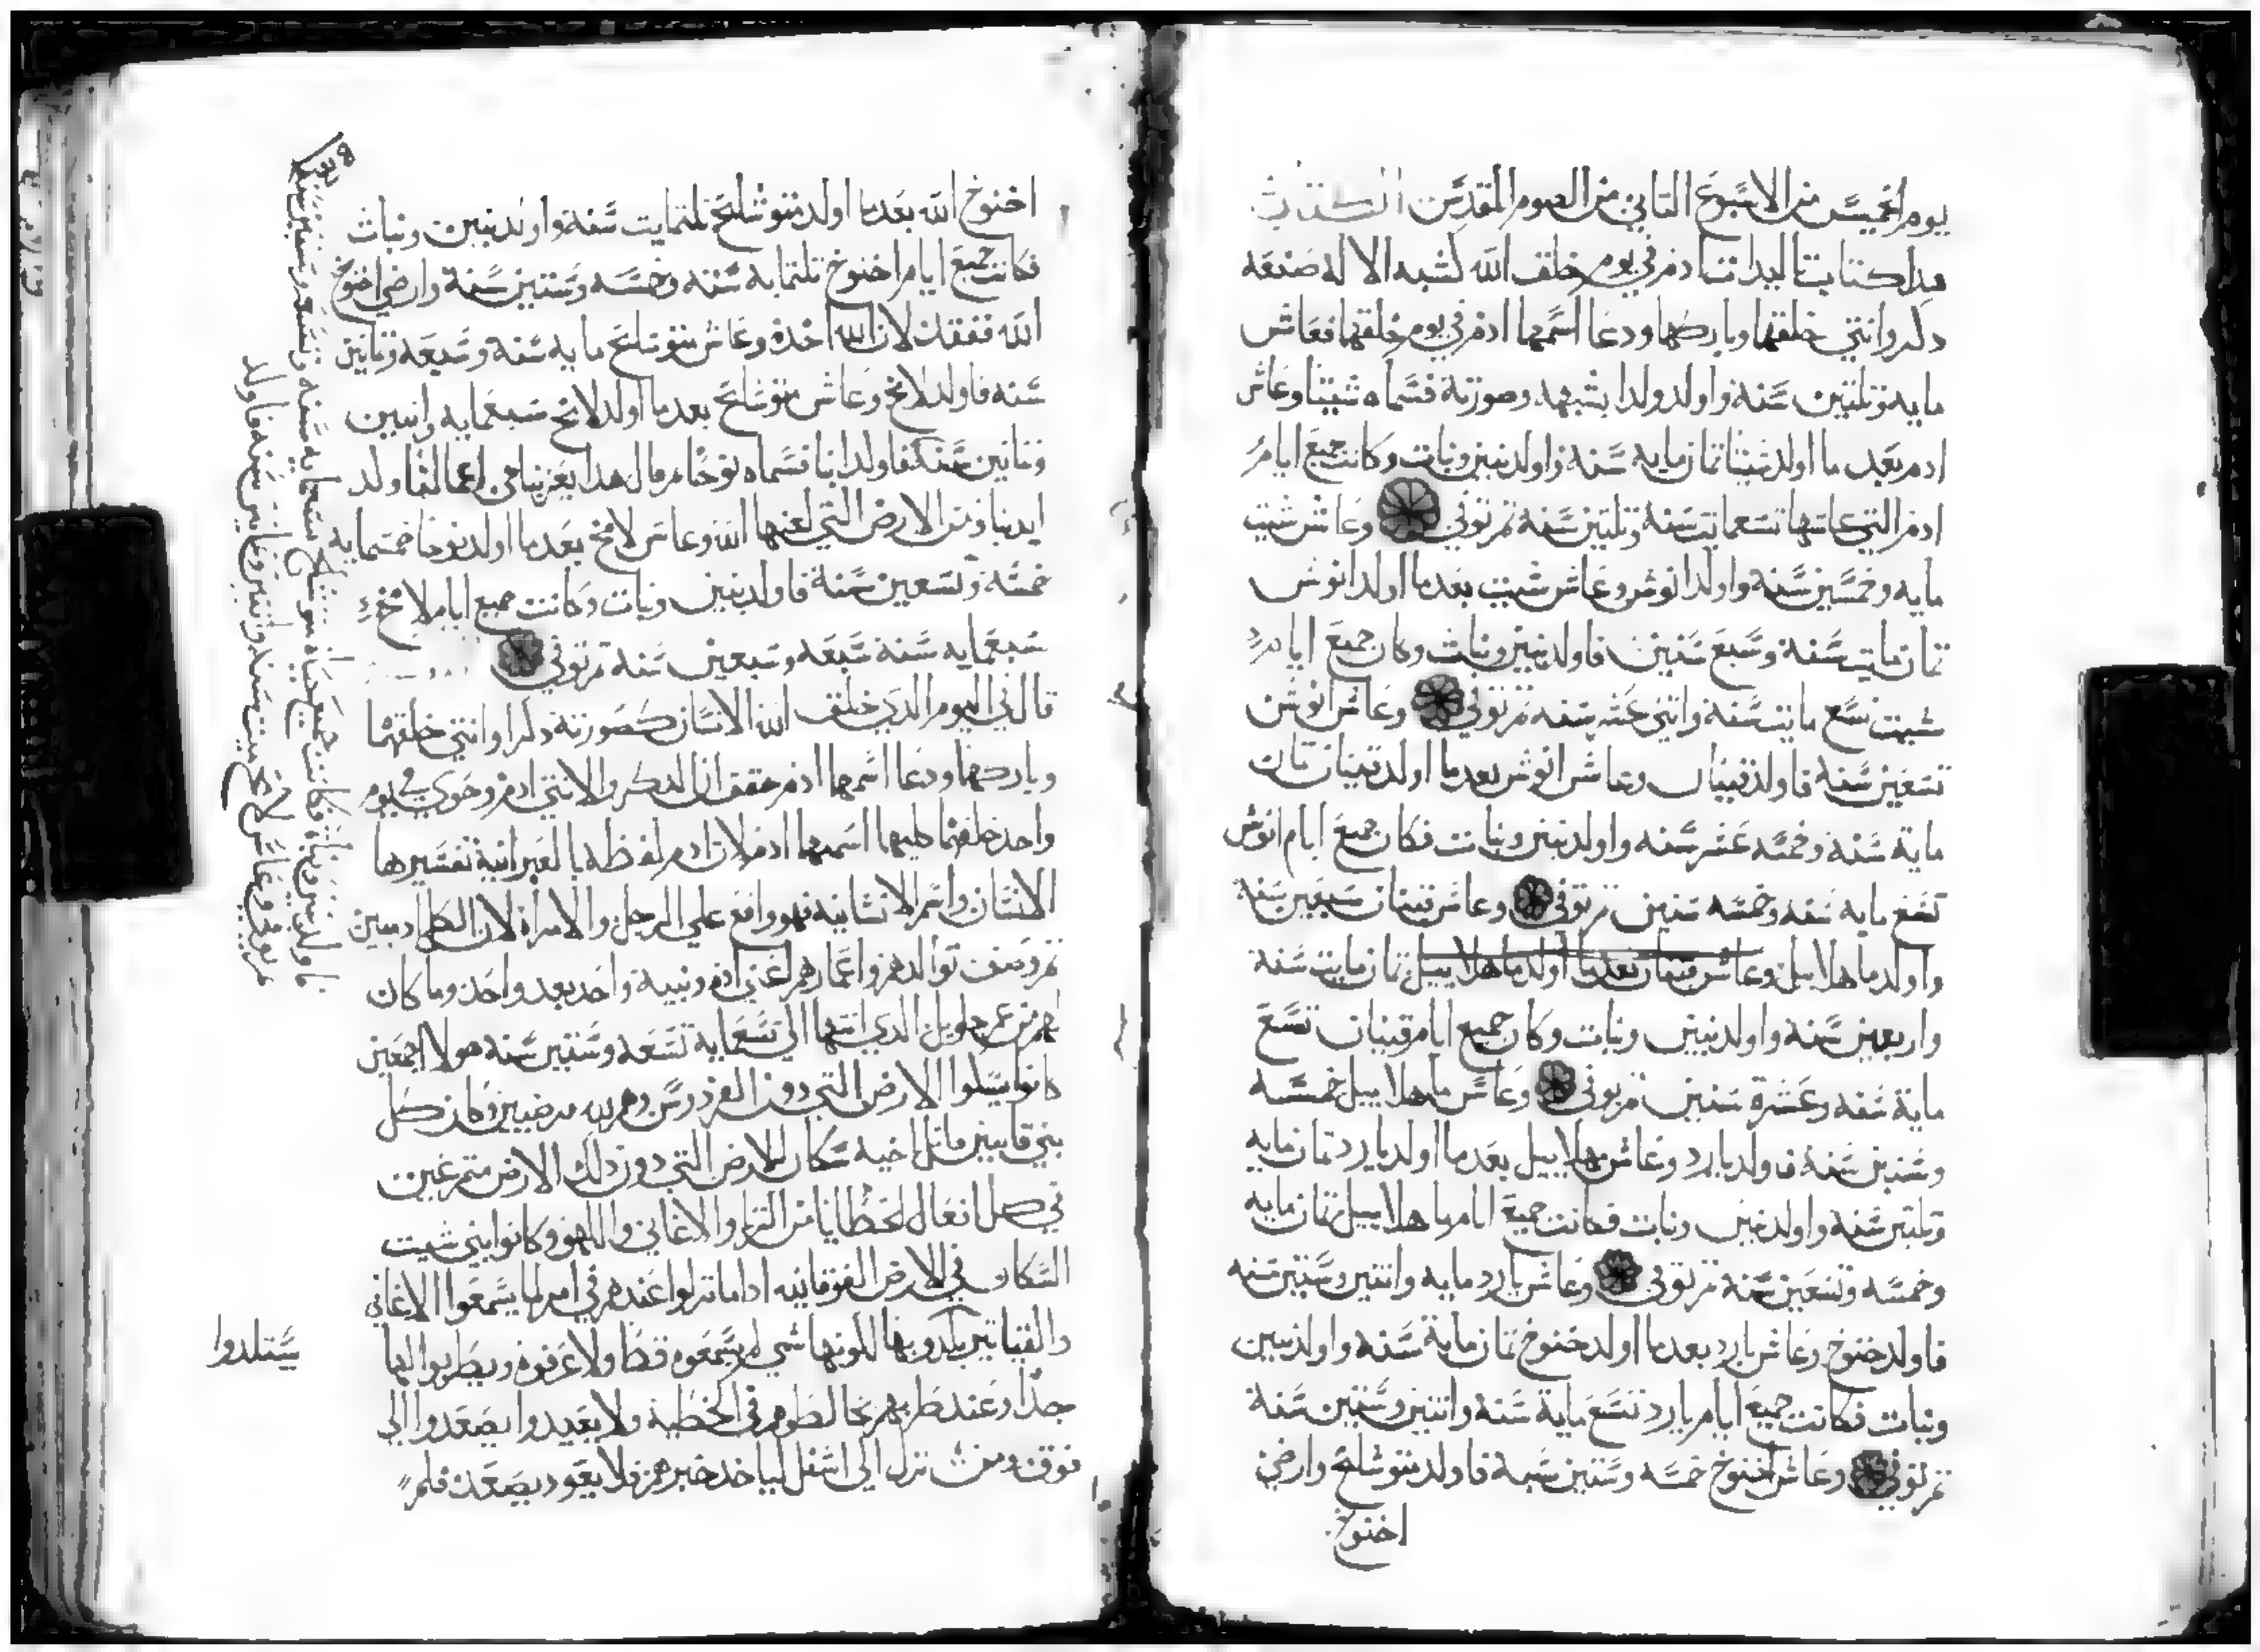 يوم الخميس من الاسبوع التاني من الصوم المقدس الكتاب
هدا كتاب ميلاد ادم في يوم خلق الله لشبه الاله صنعه
دكر وانتي خلقهما وباركهما ودعا اسمهما ادم في يوم خلقهما فعاش
مايه وتلتين سنة واولد ولدا بشبهه وصورته فسماه شيتا وعاش
ادم بعد ما اولد شيتا تمان مايه سنة واولد بنين وبنات وكانت جميع ايام
ادم التي عاشها تسعمايت سنة وتلتين سنة تم توفي وعاش شيت
مايه وخمسين سنه واولد انوش وعاش شيت بعد ما اولد انوش
تمان مايت سنة وسبع سنين فاولد بنين وبنات وكان جميع ايام
شيت تسع مايت سنة واتني عشر سنه تم توفي وعاش انوش
تسعين سنه فاولد قينان وعاش انوش بعد ما اولد قينان تمان
ماية سنة وخمسه عشر سنه واولد بنين وبنات فكان جميع ايام انوش
تسع مايه سنه وخمسه سنين تم توفي وعاش قينان سبعين سنه
واولد ماهلاييل وعاش قينان بعد ما اولد ماهلاييل تمان مايت سنة
واربعين سنة واولد بنين وبنات وكان جميع ايام قينان تسع
ماية سنه وعشرة سنين تم توفي وعاش ماهلاييل خمسه
وستين سنه فاولد يارد وعاش مهلاييل بعد ما اولد يارد تمان مايه
وتلتين سنه واولد بنين وبنات فكانت جميع ايام ماهلاييل تمان مايه
وخمسه وتسعين سنة تم توفي وعاش يارد مايه واتنين وستين سنه
فاولد خنوخ وعاش يارد بعد ما اولد خنوخ تمان ماية سنه واولد بنين
وبنات فكانت جميع ايام يارد تسع ماية سنه واتنين وستين سنة
تم توفي وعاش اخنوخ خمسه وستين سنة فاولد متوشلح وارضي
اخنوخ
اخنوخ الله بعد ما اولد متوشلح تلتمايت سنة واولد بنين وبنات
فكانت جميع ايام اخنوخ تلتمايه سنه وخمسه وستين سنة وارضي اخنوخ
الله ففقد لان الله اخده وعاش متوشلح مايه سنة وسبعه وتمانين
سنه فاولد لامخ وعاش متوشلح بعد ما اولد لامخ سبعمايه واتنين
وتمانين سنه فاولد ابنا فسماه نوحا تم قال هدا يعزينا من اعمالنا
ايدينا ومن الارض التي لعنها الله وعاش لامخ بعد ما اولد نوحا خمسمايه
خمسه وتسعين سنة فاولد بنين وبنات وكانت جميع ايام لامخ
سبعمايه سنة سبعه وسبعين سنة تم توفي
قال في اليوم الدي خلق الله الانسان كصورته دكرا وانتي خلقهما
وباركهما ودعا اسمهما ادم حقق ان الدكر والانتي ادم وحوي في يوم
واحد خلقهما كليهما اسمهما ادم لان ادم لفظه بالعبرانية تفسيرها
الانسان واسم الانسانيه فهو واقع علي الرجل والامراة لان الكل ادميين
تم وصف توالدهم واعمارهم اعني ادم وبنيه واحد بعد واحد وما كان
لهم من عمر طويل الدي انتها الي تسعماية تسعه وستين سنه هولا اجمعين
كانوا يسلوا الارض التي دون الفردوس وهم لله مرضيين وكان كل
بني قايين قاتل اخيه سكان الارض التي دون دلك الارض متمرغين
في كل افعال الخطايا من الزنا والاغاني واللهو وكانوا بني شيت
السكان في الارض الفوقانيه اداما نزلوا عندهم في امر لما يسمعوا الاغاني
والقيناتير يلدوا بها لكونها شي لم يسمعوه قط ولا عرفوه ويطربوا لها
جدا وعند طربهم يخالطوهم في الخطية ولا يعيدوا يصعدوا الي
فوق ومن نزل الي اسفل لياخد خبرهم فلا يعود يصعد فلم
يستلدوا
فاولد بنين وبنات فكانت جميع حياة متوشلح تسعمايه سنه وتسع وستين سنة
تم توفي وعاش لامخ مايت سنه واتنين وتمانين سنه فاولد